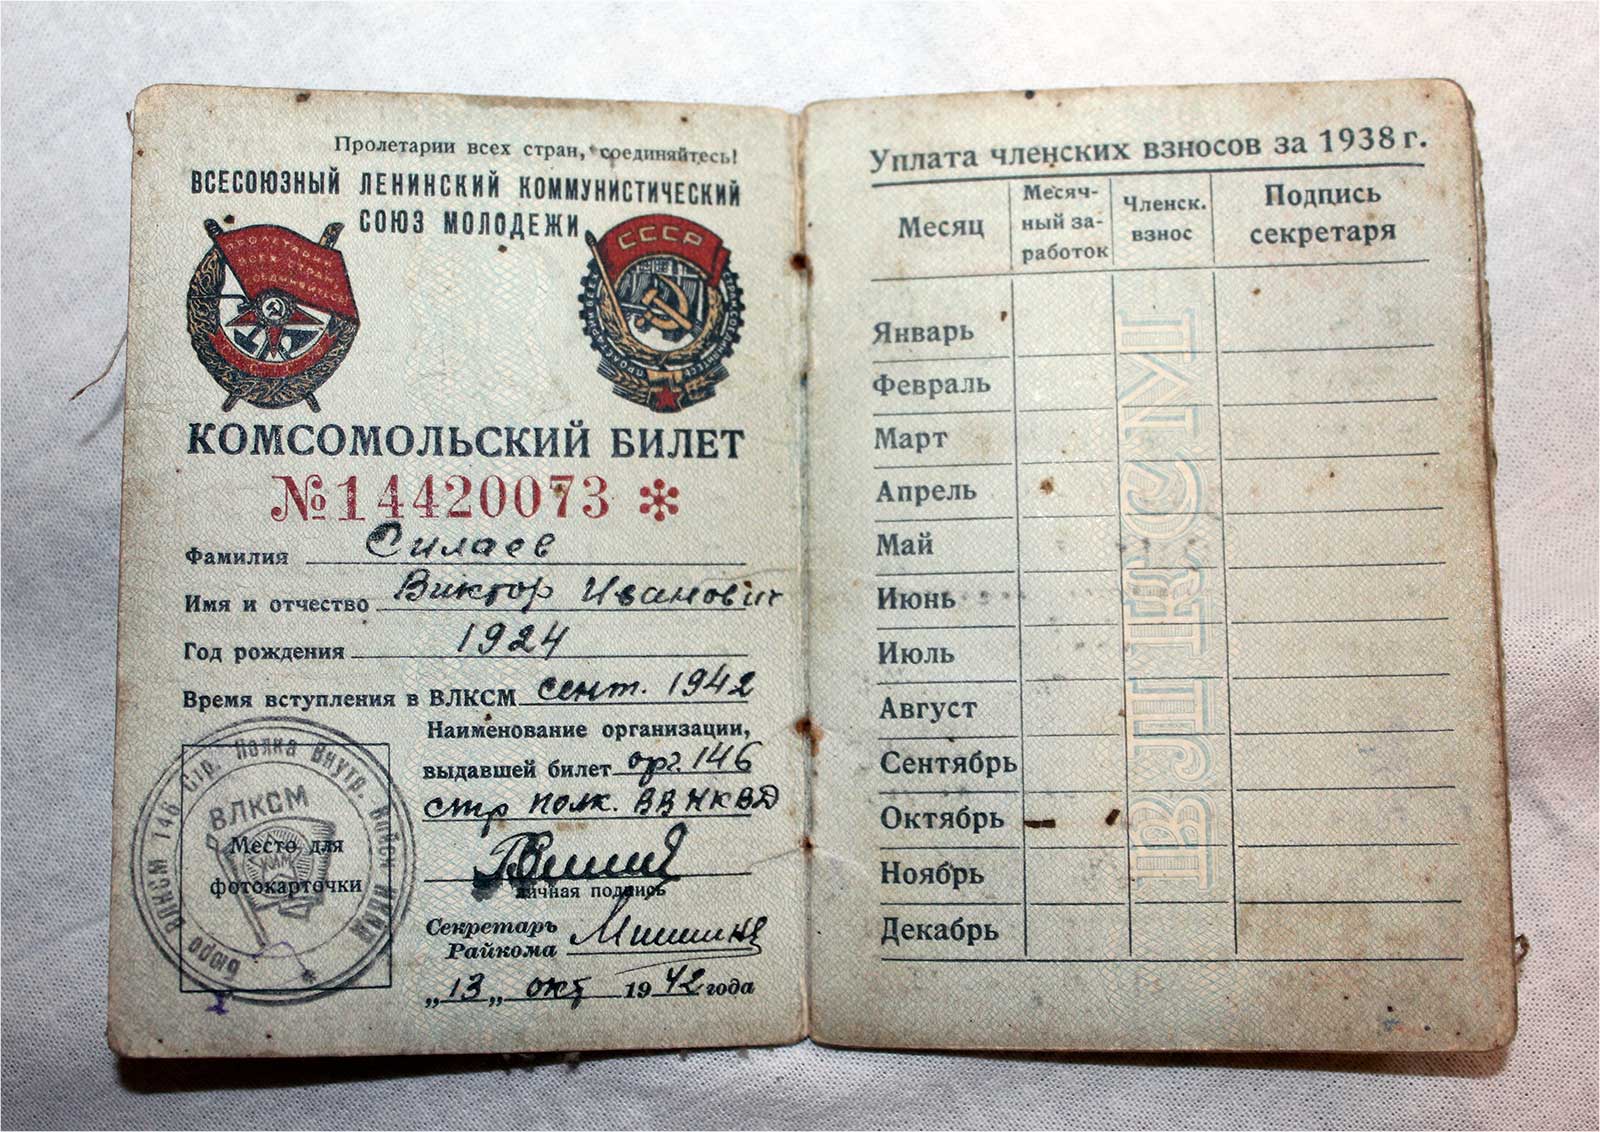 Пролетарии всех стран, соединяйтесь!
ВСЕСОЮЗНЫЙ ЛЕНИНСКИЙ КОММУНИСТИЧЕСКИЙ
СОЮЗ МОЛОДЕЖИ
ПРОЛЕТАРИИ
ВСЕХ СТРАН,
СОЕДИНЯЙТЕСЬ!
СССР
КОМСОМОЛЬСКИЙ БИЛЕТ
№14420073
Фамилия Силаев
Имя и отчество Виктор Иванович
Год рождения 1924
Время вступления в ВЛКСМ сент. 1942
Наименование организации,
выдавшей билет орг. 146
стр полк. ВВ НКВД
личная подпись
Секретарь
Райкома Мишин
„13„ окт 1942 года
Бюро ВЛКСМ 146 Стр. Полка Внутр. Войск НКВД
ВЛКСМ
КИМ
Место для
фотокарточки
Уплата членских взносов за 1938 г.
Месяц
Месяч-
ный за-
работок
Членск.
взнос
Подпись
секретаря
Январь
Февраль
Март
Апрель
Май
Июнь
Июль
Август
Сентябрь
Октябрь
Ноябрь
Декабрь
ВЛКСМ